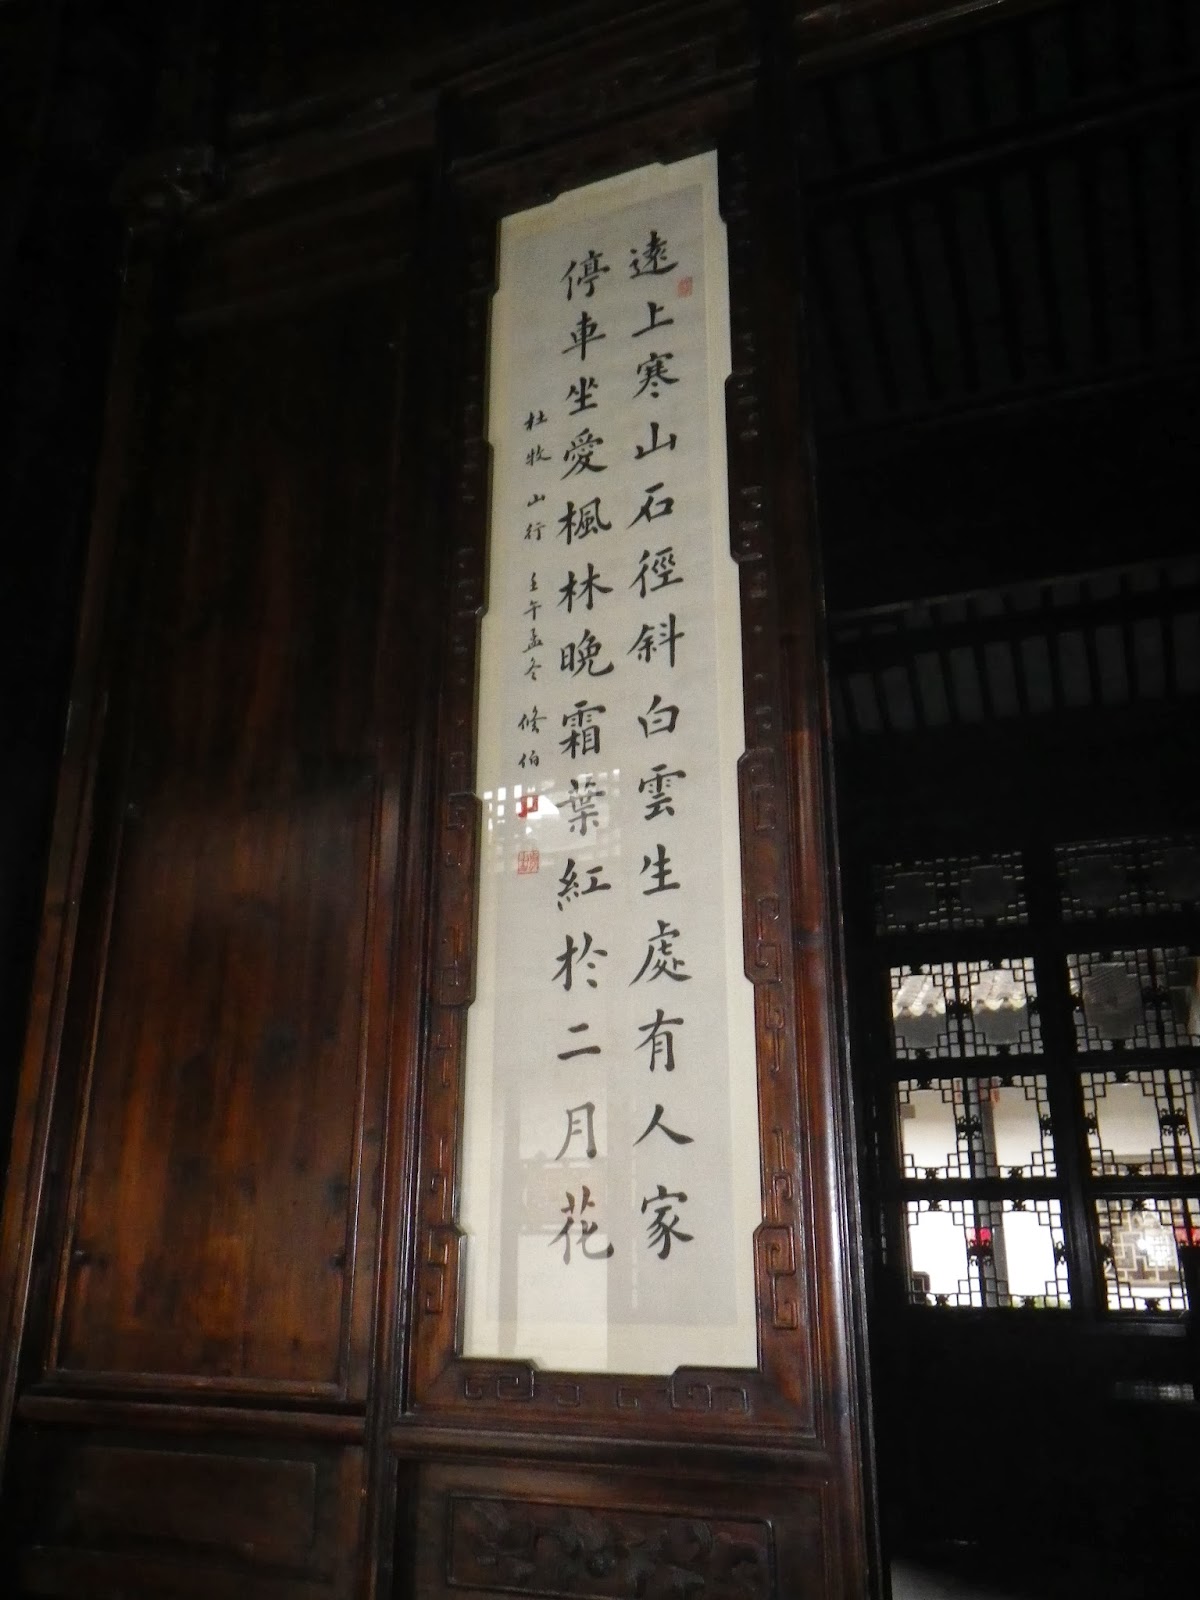 遠上寒山石徑斜白雲生處有人家
停車坐愛楓林晚霜葉紅於二月花
杜牧山行壬午孟冬修伯